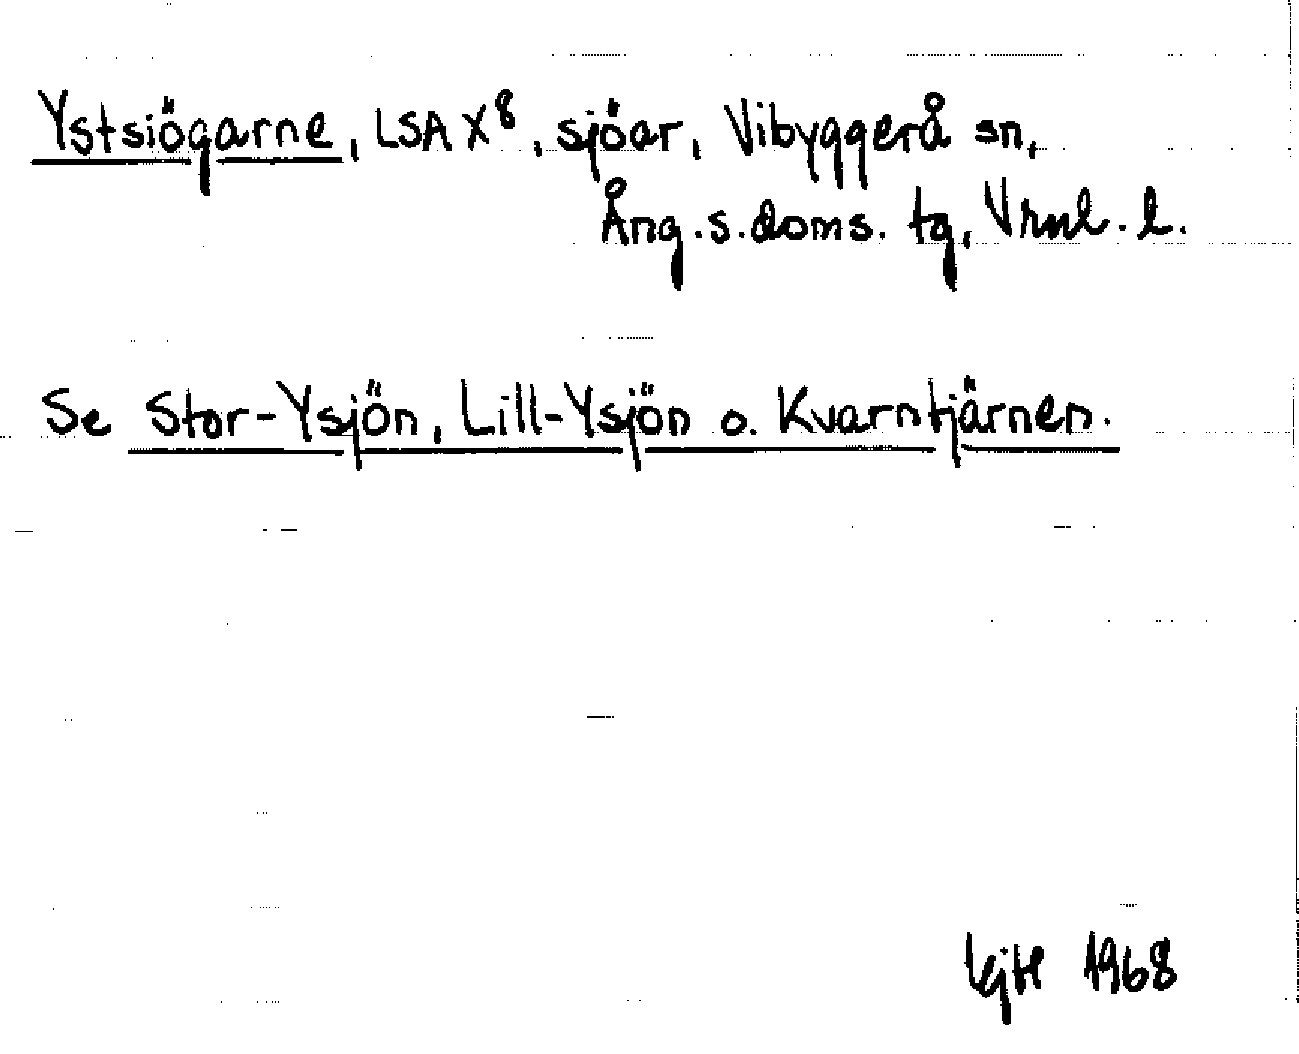 Ystsiögarne, LSA X⁸, sjöar, Vibyggerå sn,
Ång.s.doms. tg, Vrnl. l.
Se Stor-Ysjön, Lill-Ysjön o. Kvarntjärnen.
1968